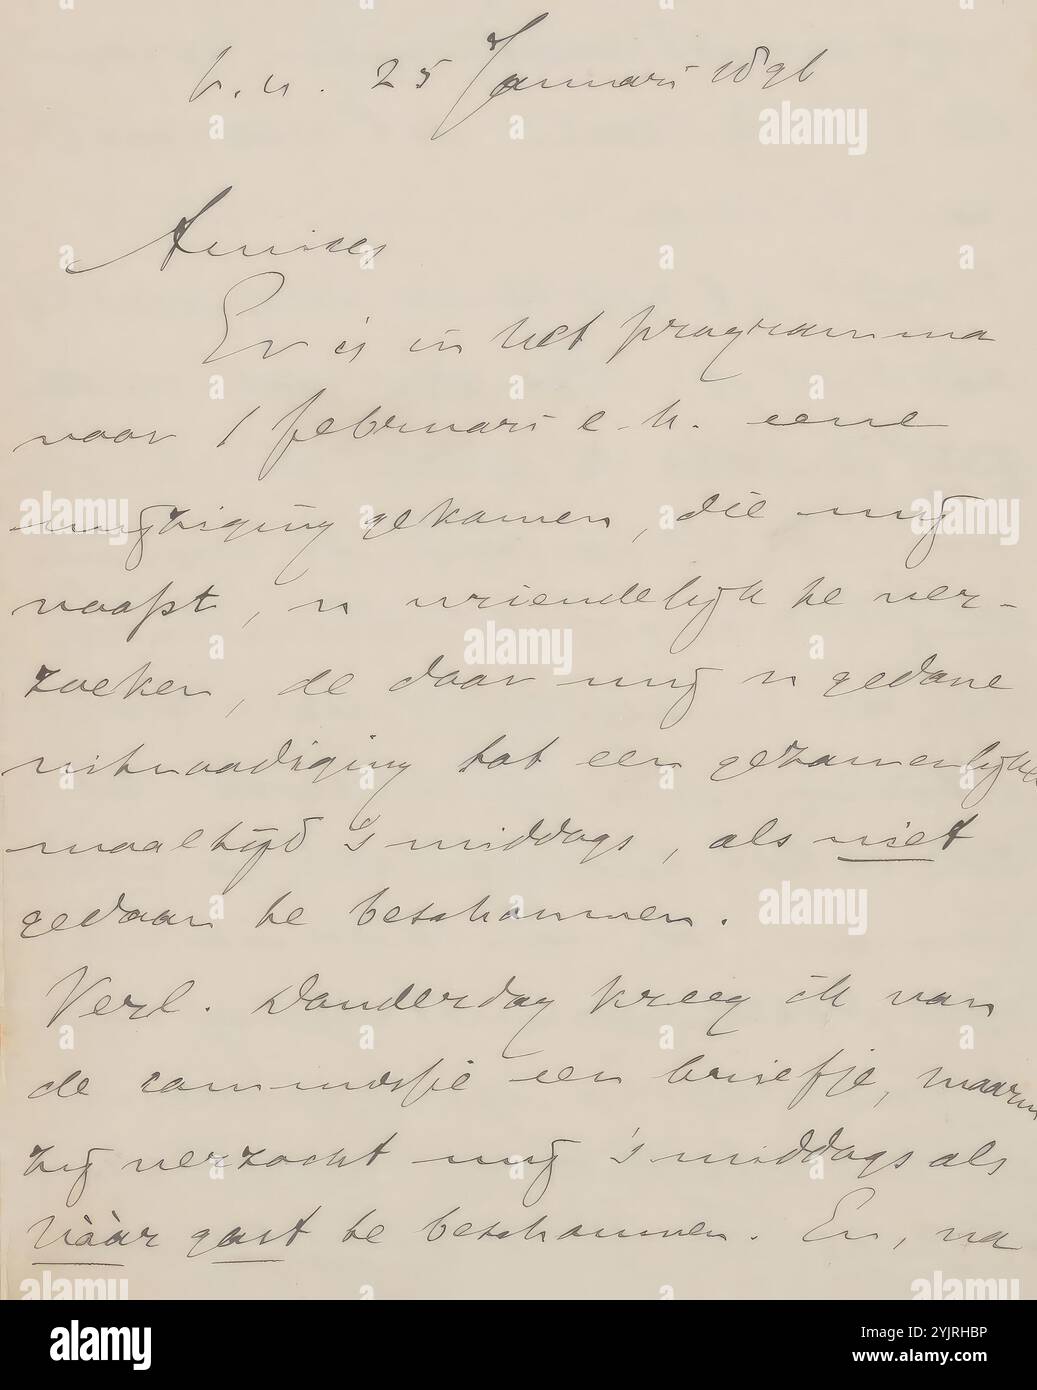 25 Januari 1896
Amices
Er is in het programma
voor 1 februari e.k. eene
wijziging gekomen, die mij
noopt, u vriendelijk te ver-
zoeken, de door mij u gedane
uitnoodiging tot een gezamenlijke
maaltijd 's middags, als niet
gedaan te beschouwen.
Verl. Donderdag kreeg ik van
de commissie een briefje, waarin
zij verzocht mij 's middags als
hààr gast te beschouwen. En, na
alamy
Image ID: 2YJRHBP
www.alamy.com